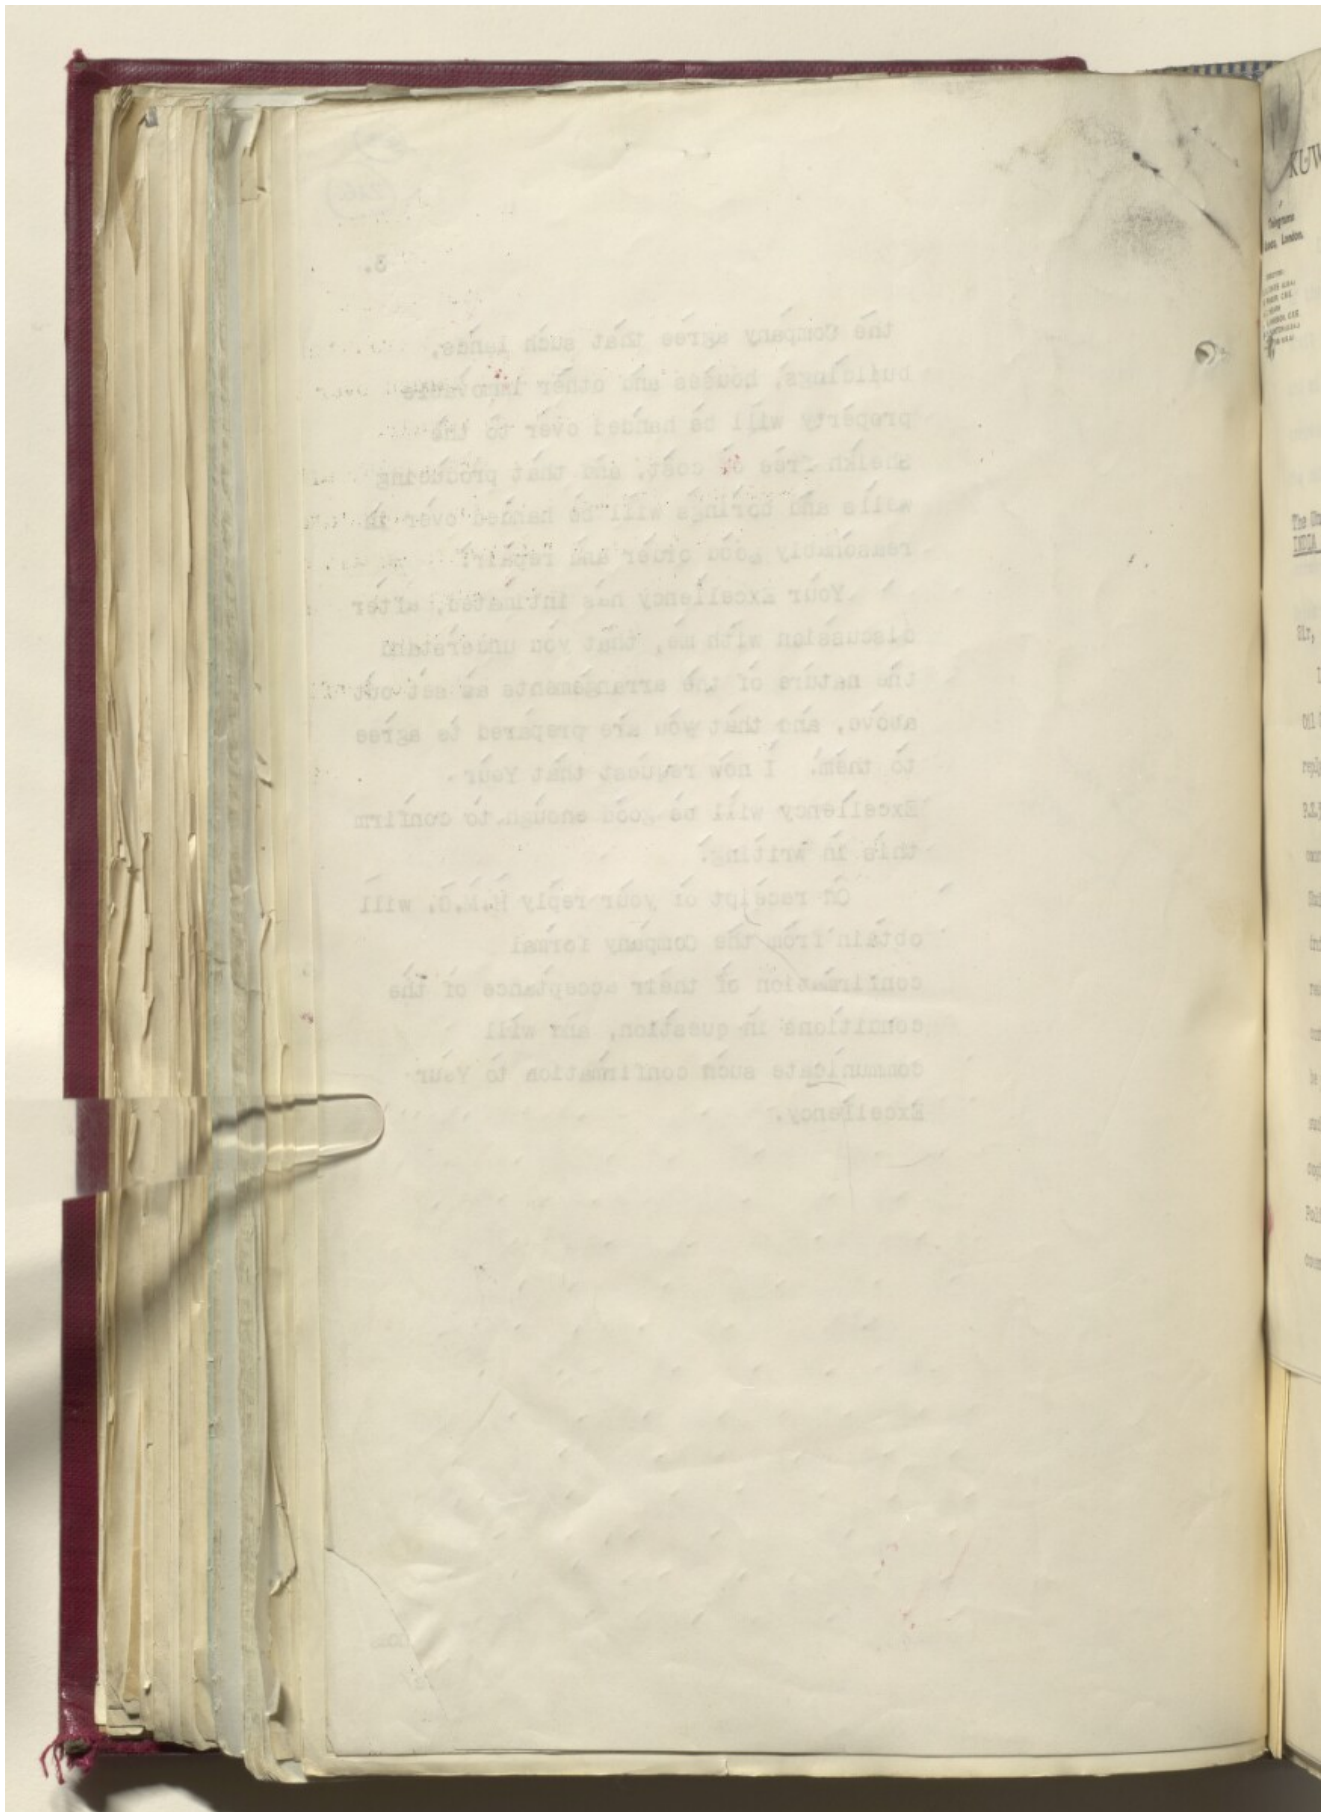 3.
the Company agree that such lands,
buildings, houses and other immovable
property will be handed over to the
Sheikh free of cost, and that producing
wells and borings will be handed over in
reasonably good order and repair.
Your Excellency has intimated, after
discussion with me, that you understand
the nature of the arrangements as set out
above, and that you are prepared to agree
to them. I now request that Your
Excellency will be good enough to confirm
this in writing.
On receipt of your reply H.M.G. will
obtain from the Company formal
confirmation of their acceptance of the
conditions in question, and will
communicate such confirmation to Your
Excellency.
KUW
Telegrams
London.
The Un
INDIA
Sir,
I
Oil